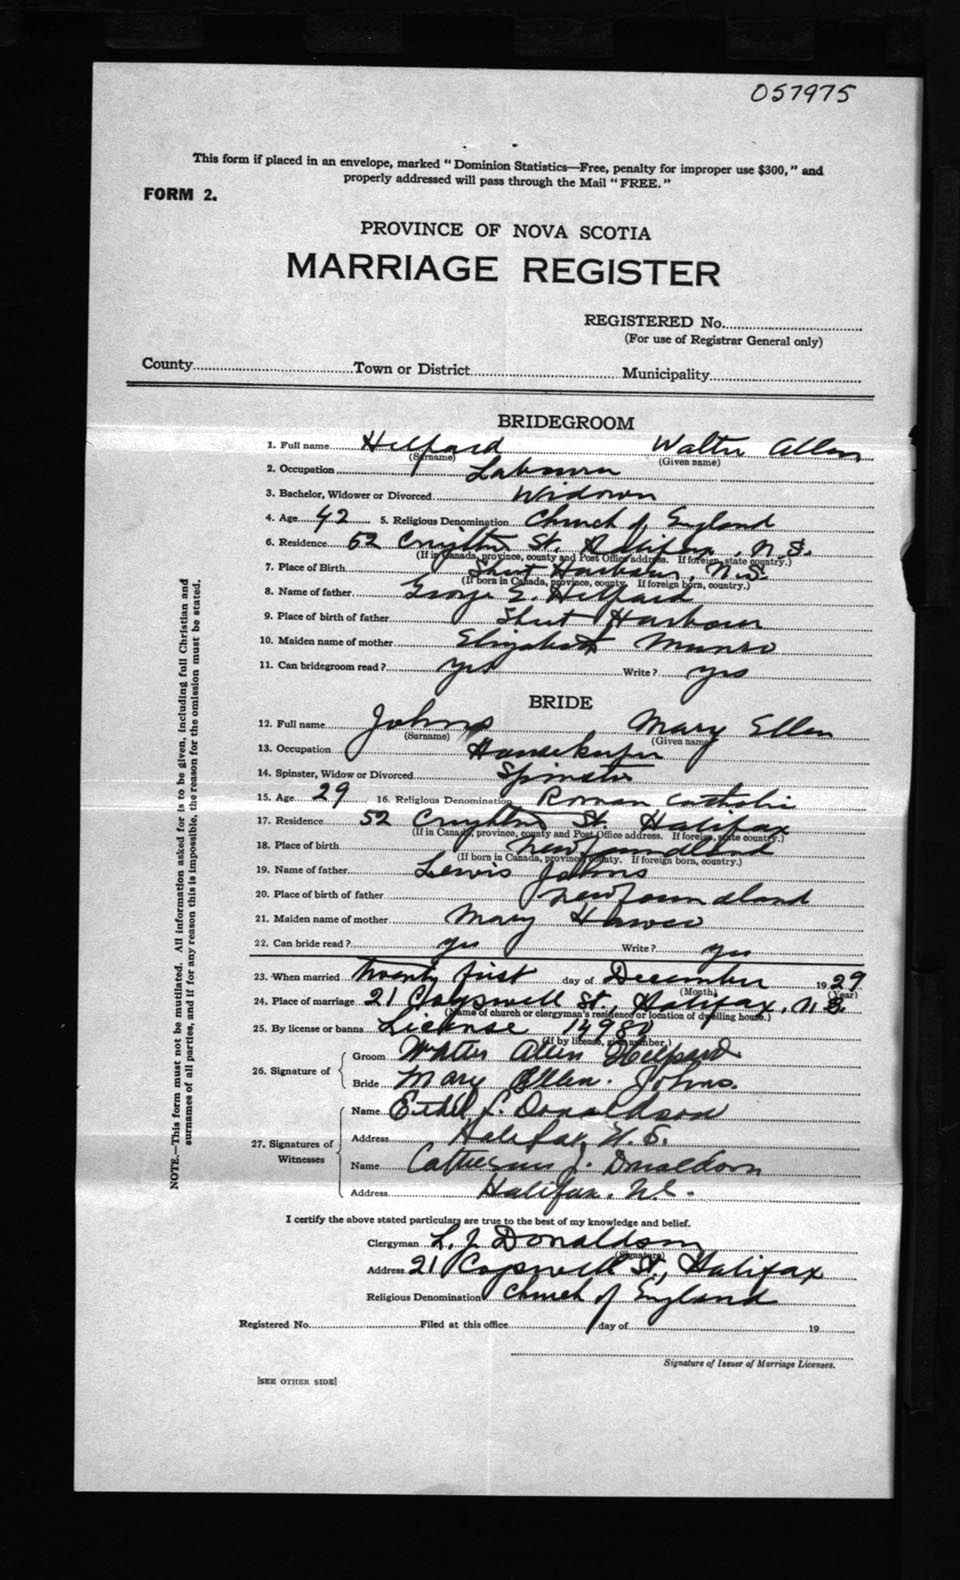 057975
This form if placed in an envelope, marked "Dominion Statistics—Free, penalty for improper use $300," and
properly addressed will pass through the Mail "FREE."
FORM 2.
PROVINCE OF NOVA SCOTIA
MARRIAGE REGISTER
REGISTERED No.
(For use of Registrar General only)
County Town or District Municipality
BRIDEGROOM
1. Full name Hilfard Walter Allen
(Surname) (Given name)
2. Occupation Labourer
3. Bachelor, Widower or Divorced Widower
4. Age 42 5. Religious Denomination Church of England
6. Residence 52 St. Halifax, N.S.
(If in Canada, province, county and Post Office address. If foreign, state country.)
7. Place of Birth Harbour, N.S.
(If born in Canada, province, county. If foreign born, country.)
8. Name of father George E. Hilfard
9. Place of birth of father Harbour
10. Maiden name of mother Elizabeth Munro
11. Can bridegroom read? yes Write? yes
BRIDE
12. Full name Johns Mary Ellen
(Surname) (Given name)
13. Occupation Housekeeper
14. Spinster, Widow or Divorced Spinster
15. Age 29 16. Religious Denomination Roman Catholic
17. Residence 52 St. Halifax
(If in Canada, province, county and Post Office address. If foreign, state country.)
18. Place of birth Newfoundland
(If born in Canada, province, county. If foreign born, country.)
19. Name of father Lewis Johns
20. Place of birth of father Newfoundland
21. Maiden name of mother Mary
22. Can bride read? yes Write? yes
23. When married Twenty first day of December 1929
(Month) (Year)
24. Place of marriage 21 Cogswell St., Halifax, N.S.
(Name of church or clergyman's residence or location of dwelling house.)
25. By license or banns License 14980
(If by license, give number.)
26. Signature of
Groom Walter Allen Hilfard
Bride Mary Ellen. Johns.
27. Signatures of Witnesses
Name Ethel L. Donaldson
Address Halifax, N.S.
Name Catherine J. Donaldson
Address Halifax. N.S.
I certify the above stated particulars are true to the best of my knowledge and belief.
Clergyman L. J. Donaldson
(Signature)
Address 21 Cogswell St., Halifax
Religious Denomination Church of England
Registered No. Filed at this office day of 19
Signature of Issuer of Marriage Licenses.
[SEE OTHER SIDE]
NOTE.—This form must not be mutilated. All information asked for is to be given, including full Christian and
surnames of all parties, and if for any reason this is impossible, the reason for the omission must be stated.